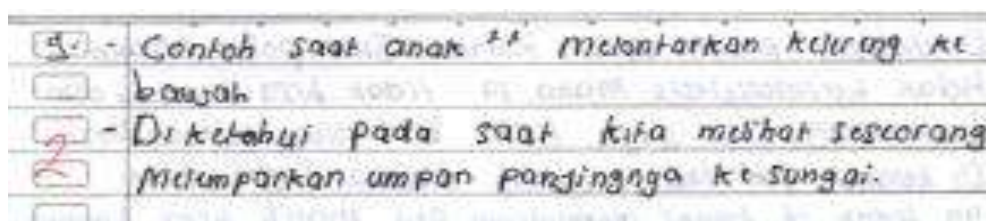 9. - Contoh saat anak ++ melontarkan kelereng ke
bawah
- Diketahui pada saat kita melihat seseorang
2
melemparkan umpan pancingnya ke sungai.